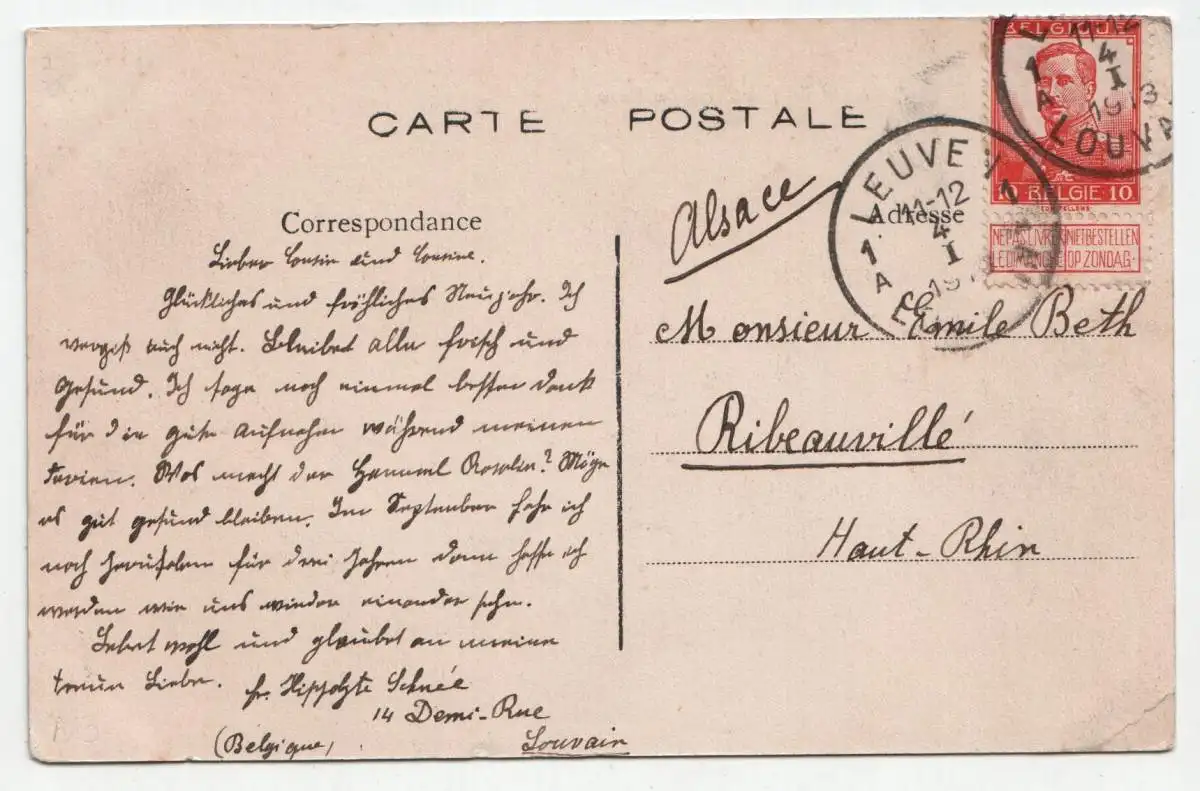 CARTE POSTALE
BELGIQUE
10 BELGIE 10
NE PAS LIVRER NIET BESTELLEN
LE DIMANCHE OP ZONDAG
11-12
4
I
1913
LOUVA
LEUVEN
1 11-12 1
4
I
A 191
Correspondance
Adresse
Lieber Cousin und Cousine.
Glückliches und fröhliches Neujahr. Ich
vergiß auch nicht. Bleibet alle frisch und
Gesund. Ich sage noch einmal besten Dank
für die gute Aufnahm während meinen
Ferien. Was macht der Rosalie? Möge
es gut gesund bleiben. Im September fahr ich
nach Jerusalem für drei Jahren dann hoffe ich
werden wir uns wieder einander sehn.
Lebet wohl und glaubet an meine
treue Liebe. fr. Hippolyte Schnéé
14 Demi-Rue
(Belgique) Louvain
Alsace
Monsieur Emile Beth
Ribeauvillé
Haut-Rhin